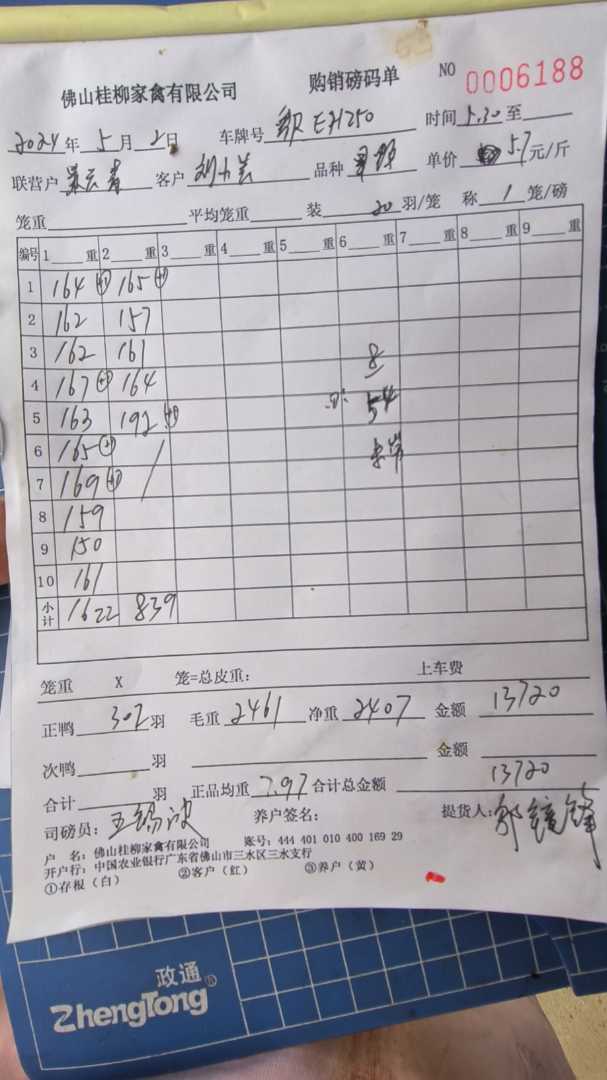 佛山桂柳家禽有限公司 购销磅码单 NO 0006188
2024年5月2日 车牌号 EH250 时间 5.30 至
联营户 客户 品种 单价 5.7元/斤
笼重 平均笼重 装 20 羽/笼 称 1 笼/磅
编号 1 重 2 重 3 重 4 重 5 重 6 重 7 重 8 重 9 重
1 164 165
2 162 157
3 162 161 8
4 167 164
5 163 192 54
6 165
7 169
8 159
9 150
10 161
小计 1622 839
笼重 X 笼=总皮重: 上车费
正鸭 302 羽 毛重 2461 净重 2407 金额 13720
次鸭 羽 金额
合计 羽 正品均重 7.97 合计总金额 13720
司磅员: 养户签名: 提货人:
户 名: 佛山桂柳家禽有限公司 账号: 444 401 010 400 169 29
开户行: 中国农业银行广东省佛山市三水区三水支行
①存根(白) ②客户(红) ③养户(黄)
政通
ZhengTong®